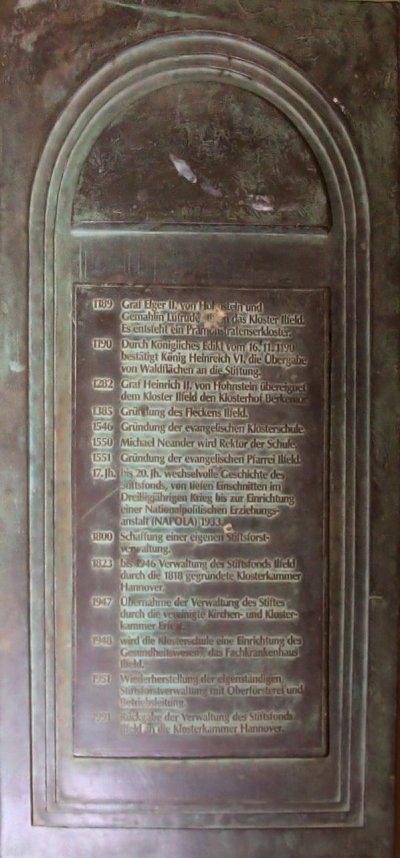 1189 Graf Elger II. von Hohnstein und
Gemahlin Lutrude das Kloster Ilfeld.
Es entsteht ein Prämonstratenserkloster.
1190 Durch Königliches Edikt vom 16. 11. 1190
bestätigt König Heinreich VI. die Übergabe
von Waldflächen an die Stiftung.
1282 Graf Heinrich II. von Hohnstein übereignet
dem Kloster Ilfeld den Klosterhof
1385 Gründung des Fleckens Ilfeld.
1546 Gründung der evangelischen Klosterschule.
1550 Michael Neander wird Rektor der Schule.
1551 Gründung der evangelischen Pfarrei Ilfeld.
17. Jh. bis 20. Jh. wechselvolle Geschichte des
Stiftsfonds, von tiefen Einschnitten im
Dreißigjährigen Krieg bis zur Einrichtung
einer Nationalpolitischen Erziehungs-
anstalt (NAPOLA) 1933.
1800 Schaffung einer eigenen Stiftsforst-
verwaltung.
1823 bis 1946 Verwaltung des Stiftsfonds Ilfeld
durch die 1818 gegründete Klosterkammer
Hannover.
1947 Übernahme der Verwaltung des Stiftes
durch die vereinigte Kirchen- und Kloster-
kammer Erfurt.
1948 wird die Klosterschule eine Einrichtung des
Gesundheitswesens, das Fachkrankenhaus
Ilfeld.
1951 Wiederherstellung der eigenständigen
Stiftsforstverwaltung mit Oberförsterei und
Betriebsleitung.
1991 Rückgabe der Verwaltung des Stiftsfonds
Ilfeld an die Klosterkammer Hannover.